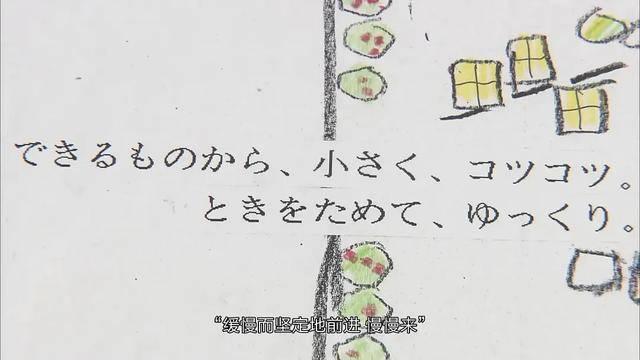 できるものから、小さく、コツコツ。
ときをためて、ゆっくり。
“缓慢而坚定地前进 慢慢来”